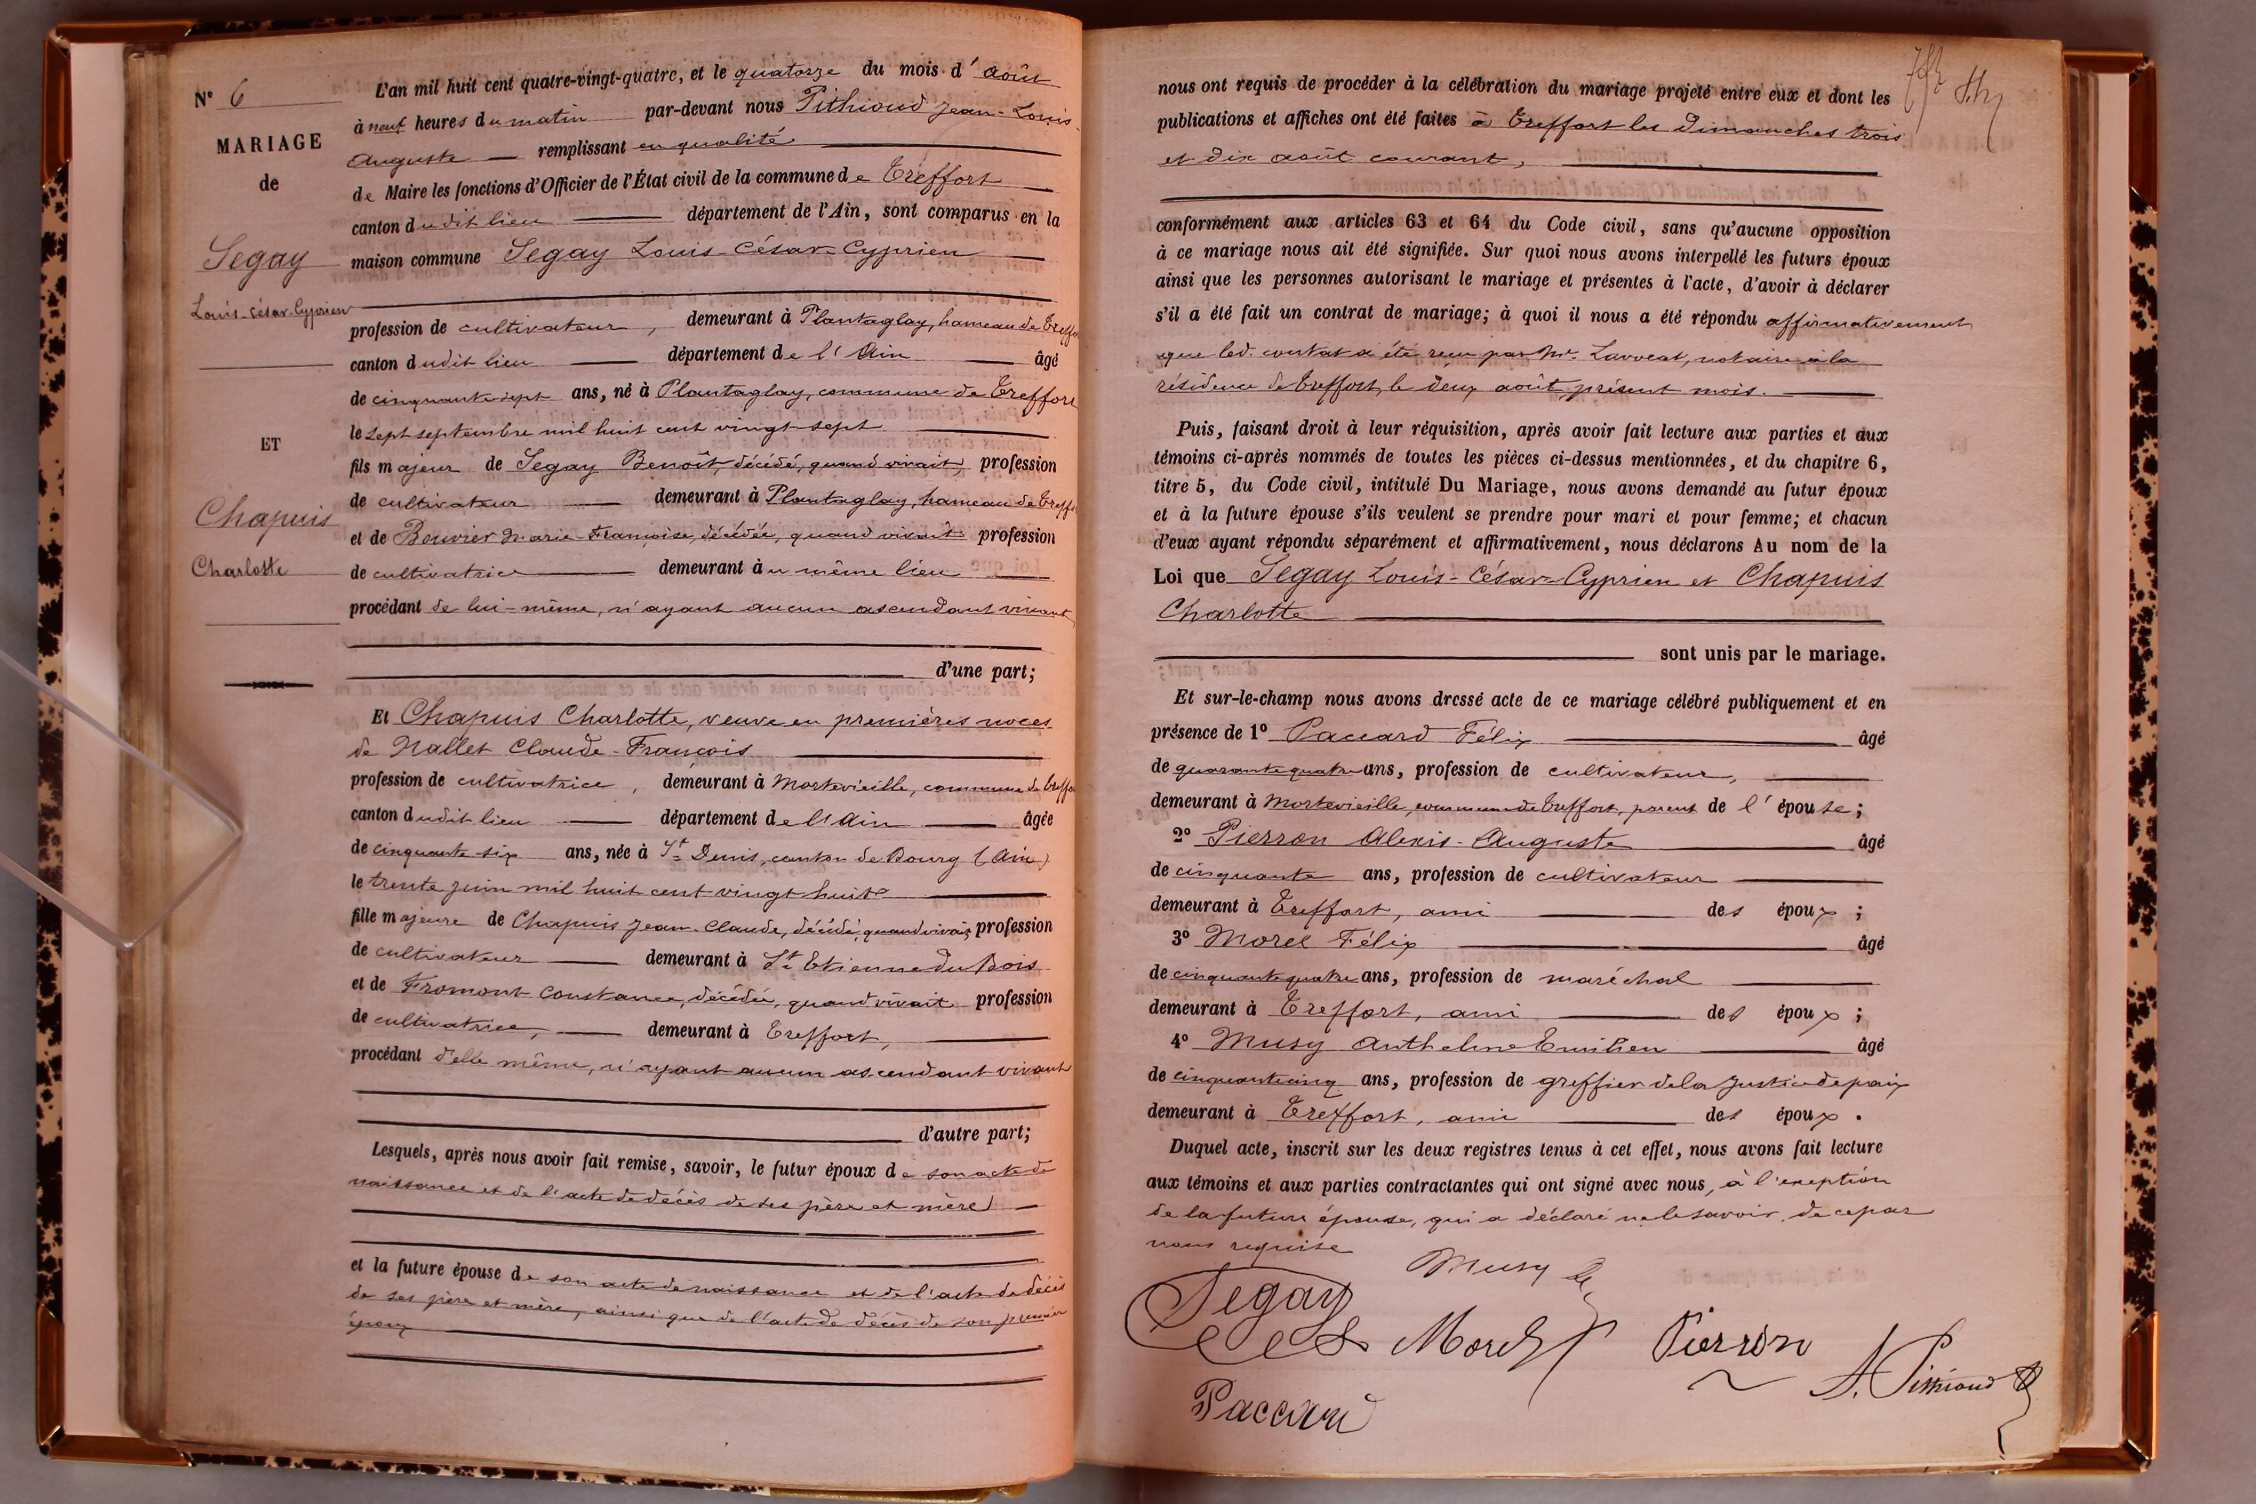 N° 6
MARIAGE
de
Segay
Louis-César-Cyprien
ET
Chapuis
Charlotte
L'an mil huit cent quatre-vingt-quatre, et le quatorze du mois d'août
à neuf heures du matin par-devant nous Pithioud Jean-Louis-
Auguste remplissant en qualité
de Maire les fonctions d'Officier de l'État civil de la commune de Treffort
canton dudit lieu département de l'Ain, sont comparus en la
maison commune Segay Louis-César-Cyprien
profession de cultivateur, demeurant à Plantaglay, hameau de Treffort
canton dudit lieu département de l'Ain âgé
de cinquante-sept ans, né à Plantaglay, commune de Treffort
le sept septembre mil huit cent vingt-sept
fils majeur de Segay Benoît, décédé, quand vivait, profession
de cultivateur demeurant à Plantaglay, hameau de Treffort
et de Bouvier Marie-Françoise, décédée, quand vivait profession
de cultivatrice demeurant au même lieu
procédant de lui-même, n'ayant aucun ascendant vivant
d'une part;
Et Chapuis Charlotte, veuve en premières noces
de Nallet Claude-François
profession de cultivatrice, demeurant à Mortevieille, commune de Treffort
canton dudit lieu département de l'Ain âgée
de cinquante-six ans, née à St Denis, canton de Bourg (Ain)
le trente juin mil huit cent vingt huit
fille majeure de Chapuis Jean-Claude, décédé, quand vivait, profession
de cultivateur demeurant à St Etienne du Bois
et de Fromont Constance, décédée, quand vivait profession
de cultivatrice, demeurant à Treffort,
procédant d'elle même, n'ayant aucun ascendant vivant
d'autre part;
Lesquels, après nous avoir fait remise, savoir, le futur époux de son acte de
naissance et de l'acte de décès de ses père et mère
et la future épouse de son acte de naissance et de l'acte de décès
de ses père et mère, ainsi que de l'acte de décès de son premier
époux
nous ont requis de procéder à la célébration du mariage projeté entre eux et dont les
publications et affiches ont été faites à Treffort les Dimanches trois
et dix août courant,
conformément aux articles 63 et 64 du Code civil, sans qu'aucune opposition
à ce mariage nous ait été signifiée. Sur quoi nous avons interpellé les futurs époux
ainsi que les personnes autorisant le mariage et présentes à l'acte, d'avoir à déclarer
s'il a été fait un contrat de mariage; à quoi il nous a été répondu affirmativement
que led. contrat a été reçu par Me. Lavocat, notaire à la
résidence de Treffort, le deux août présent mois.
Puis, faisant droit à leur réquisition, après avoir fait lecture aux parties et aux
témoins ci-après nommés de toutes les pièces ci-dessus mentionnées, et du chapitre 6,
titre 5, du Code civil, intitulé Du Mariage, nous avons demandé au futur époux
et à la future épouse s'ils veulent se prendre pour mari et pour femme; et chacun
d'eux ayant répondu séparément et affirmativement, nous déclarons Au nom de la
Loi que Segay Louis-César-Cyprien et Chapuis
Charlotte
sont unis par le mariage.
Et sur-le-champ nous avons dressé acte de ce mariage célébré publiquement et en
présence de 1° Paccard Félix âgé
de quarante quatre ans, profession de cultivateur,
demeurant à Mortevieille, commune de Treffort, parent de l'épouse;
2° Pierron Alexis-Auguste âgé
de cinquante ans, profession de cultivateur
demeurant à Treffort, ami des époux;
3° Morel Félix âgé
de cinquante quatre ans, profession de maréchal
demeurant à Treffort, ami des époux;
4° Musy Anthelme Emilien âgé
de cinquante cinq ans, profession de greffier de la justice de paix
demeurant à Treffort, ami des époux.
Duquel acte, inscrit sur les deux registres tenus à cet effet, nous avons fait lecture
aux témoins et aux parties contractantes qui ont signé avec nous, à l'exeption
de la future épouse, qui a déclaré ne le savoir, de ce par
nous requise
Musy
Segay
Morel
Pierron
A. Pithioud
Paccard